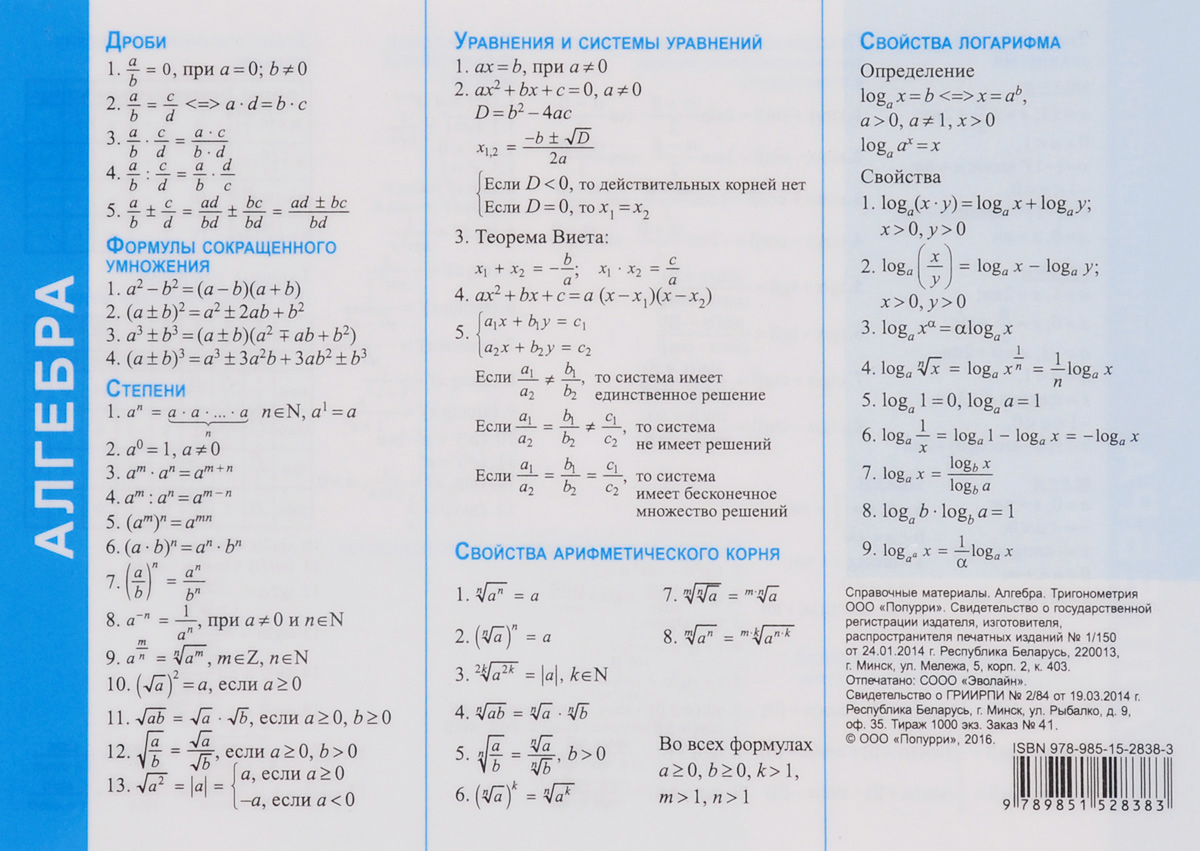 АЛГЕБРА
ДРОБИ
1. a/b = 0, при a = 0; b ≠ 0
2. a/b = c/d <=> a · d = b · c
3. a/b · c/d = (a · c)/(b · d)
4. a/b : c/d = a/b · d/c
5. a/b ± c/d = ad/bd ± bc/bd = (ad ± bc)/bd
ФОРМУЛЫ СОКРАЩЕННОГО
УМНОЖЕНИЯ
1. a² – b² = (a – b)(a + b)
2. (a ± b)² = a² ± 2ab + b²
3. a³ ± b³ = (a ± b)(a² ∓ ab + b²)
4. (a ± b)³ = a³ ± 3a²b + 3ab² ± b³
СТЕПЕНИ
1. aⁿ = a · a · ... · a n∈N, a¹ = a
n
2. a⁰ = 1, a ≠ 0
3. aᵐ · aⁿ = aᵐ⁺ⁿ
4. aᵐ : aⁿ = aᵐ⁻ⁿ
5. (aᵐ)ⁿ = aᵐⁿ
6. (a · b)ⁿ = aⁿ · bⁿ
7. (a/b)ⁿ = aⁿ/bⁿ
8. a⁻ⁿ = 1/aⁿ, при a ≠ 0 и n∈N
9. a^(m/n) = ⁿ√aᵐ, m∈Z, n∈N
10. (√a)² = a, если a ≥ 0
11. √ab = √a · √b, если a ≥ 0, b ≥ 0
12. √(a/b) = √a/√b, если a ≥ 0, b > 0
13. √a² = |a| = { a, если a ≥ 0
–a, если a < 0
УРАВНЕНИЯ И СИСТЕМЫ УРАВНЕНИЙ
1. ax = b, при a ≠ 0
2. ax² + bx + c = 0, a ≠ 0
D = b² – 4ac
x₁,₂ = (–b ± √D)/2a
{ Если D < 0, то действительных корней нет
Если D = 0, то x₁ = x₂
3. Теорема Виета:
x₁ + x₂ = –b/a; x₁ · x₂ = c/a
4. ax² + bx + c = a (x – x₁)(x – x₂)
5. { a₁x + b₁y = c₁
a₂x + b₂y = c₂
Если a₁/a₂ ≠ b₁/b₂, то система имеет
единственное решение
Если a₁/a₂ = b₁/b₂ ≠ c₁/c₂, то система
не имеет решений
Если a₁/a₂ = b₁/b₂ = c₁/c₂, то система
имеет бесконечное
множество решений
СВОЙСТВА АРИФМЕТИЧЕСКОГО КОРНЯ
1. ⁿ√aⁿ = a
2. (ⁿ√a)ⁿ = a
3. ²ᵏ√a²ᵏ = |a|, k∈N
4. ⁿ√ab = ⁿ√a · ⁿ√b
5. ⁿ√(a/b) = ⁿ√a/ⁿ√b, b > 0
6. (ⁿ√a)ᵏ = ⁿ√aᵏ
7. ᵐ√ⁿ√a = ᵐ·ⁿ√a
8. ᵐ√aⁿ = ᵐ·ᵏ√aⁿ·ᵏ
Во всех формулах
a ≥ 0, b ≥ 0, k > 1,
m > 1, n > 1
СВОЙСТВА ЛОГАРИФМА
Определение
logₐ x = b <=> x = aᵇ,
a > 0, a ≠ 1, x > 0
logₐ aˣ = x
Свойства
1. logₐ(x · y) = logₐ x + logₐ y;
x > 0, y > 0
2. logₐ(x/y) = logₐ x – logₐ y;
x > 0, y > 0
3. logₐ x^α = α logₐ x
4. logₐ ⁿ√x = logₐ x^(1/n) = 1/n logₐ x
5. logₐ 1 = 0, logₐ a = 1
6. logₐ 1/x = logₐ 1 – logₐ x = –logₐ x
7. logₐ x = log_b x/log_b a
8. logₐ b · log_b a = 1
9. log_(aᵅ) x = 1/α logₐ x
Справочные материалы. Алгебра. Тригонометрия
ООО «Попурри». Свидетельство о государственной
регистрации издателя, изготовителя,
распространителя печатных изданий № 1/150
от 24.01.2014 г. Республика Беларусь, 220013,
г. Минск, ул. Мележа, 5, корп. 2, к. 403.
Отпечатано: СООО «Эволайн».
Свидетельство о ГРИИРПИ № 2/84 от 19.03.2014 г.
Республика Беларусь, г. Минск, ул. Рыбалко, д. 9,
оф. 35. Тираж 1000 экз. Заказ № 41.
© ООО «Попурри», 2016.
ISBN 978-985-15-2838-3
9 789851 528383